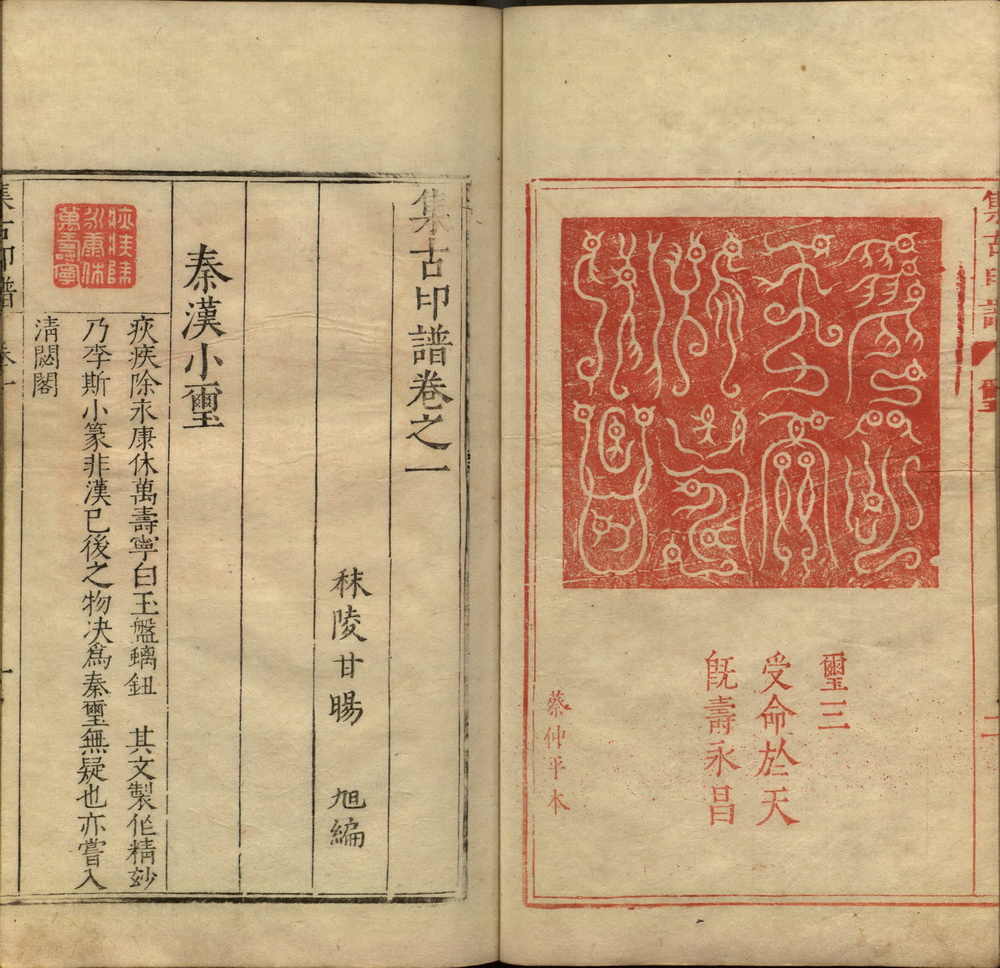 集古印譜 璽 二
璽三
受命於天
旣壽永昌
蔡仲平本
集古印譜卷之一
秣陵甘暘 旭編
秦漢小璽
疢疾除永康休萬壽寧
疢疾除永康休萬壽寧白玉盤螭鈕 其文製作精玅
乃李斯小篆非漢已後之物决爲秦璽無疑也亦嘗入
淸閟閣
集古印譜 卷一 一